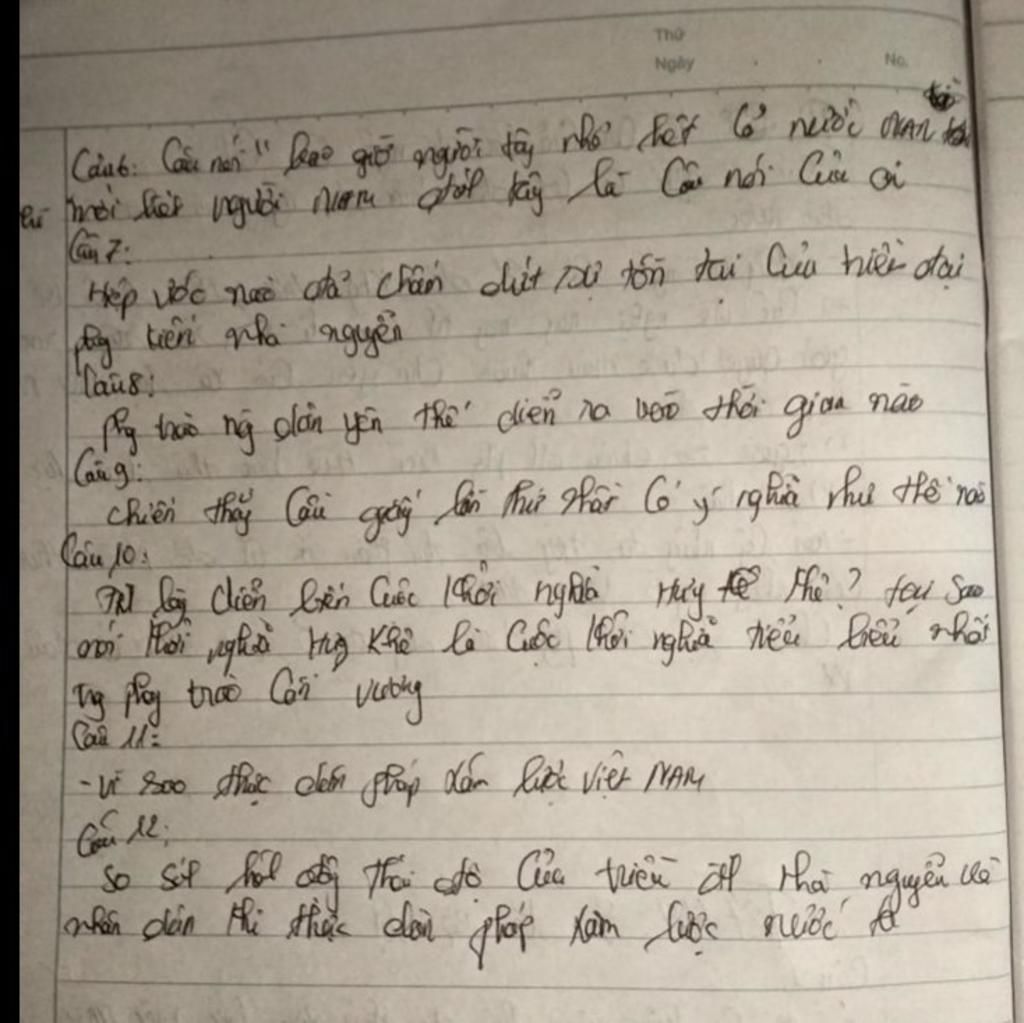 Thứ
Ngày No.
Câu 6: Câu nói " bao giờ người tây nhổ hết Cỏ nước NAM
mới hết người NAM đánh tây là Câu nói Của ai
Câu 7:
Hiệp ước nào đã chấm dứt sự tồn tại Của triều đại
phg kiến nhà nguyễn
Câu 8:
phg trào ng dân yên thế diễn ra vào thời gian nào
Câu 9:
chiến thắng Cầu giấy lần thứ nhất Có ý nghĩa như thế nào
Câu 10:
diễn biến Cuộc khởi nghĩa Hưng khê? tại Sao
nói khởi nghĩa Hưg Khê là Cuộc khởi nghĩa tiêu biểu nhất
trg phg trào Cần Vương
Câu 11:
- vì sao thực dân pháp xâm lược việt NAM
Câu 12:
So sánh hành động thái độ Của triều đình nhà nguyễn và
nhân dân khi thực dân pháp xâm lược nước ta